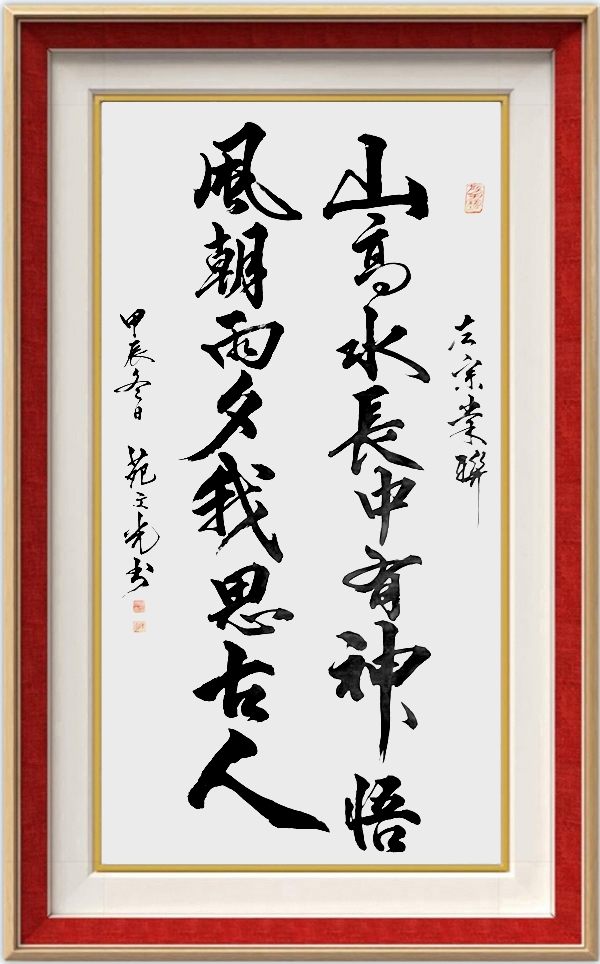 左宗棠聯
山高水長中有神悟
風朝雨夕我思古人
甲辰冬日 苑文光书